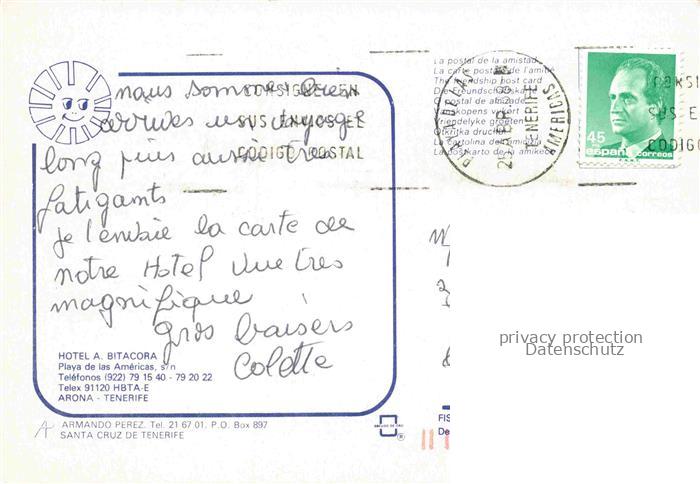 nous sommes bien
arrivés un voyage
long puis aussi très
fatigants
je t'envoie la carte de
notre Hotel vue très
magnifique
gros baisers
Colette
CONSIGNE EN
SUS ENVIOS EL
CODIGO POSTAL
HOTEL A. BITACORA
Playa de las Américas, s/n
Teléfonos (922) 79 15 40 - 79 20 22
Telex 91120 HBTA-E
ARONA - TENERIFE
ARMANDO PEREZ. Tel. 21 67 01. P.O. Box 897
SANTA CRUZ DE TENERIFE
La postal de la amistad
La carte postale de l'amitié
The friendship post card
Die Freundschafts
Postal de amizade
Vriendelyke groeten
Otkritka druchi
La cartolina de amicizia
La postkarto de la amikeco
TENERIFE
AMERICAS
45
españa correos
CONSI
SUS E
CODIGO
FIS
De
privacy protection
Datenschutz